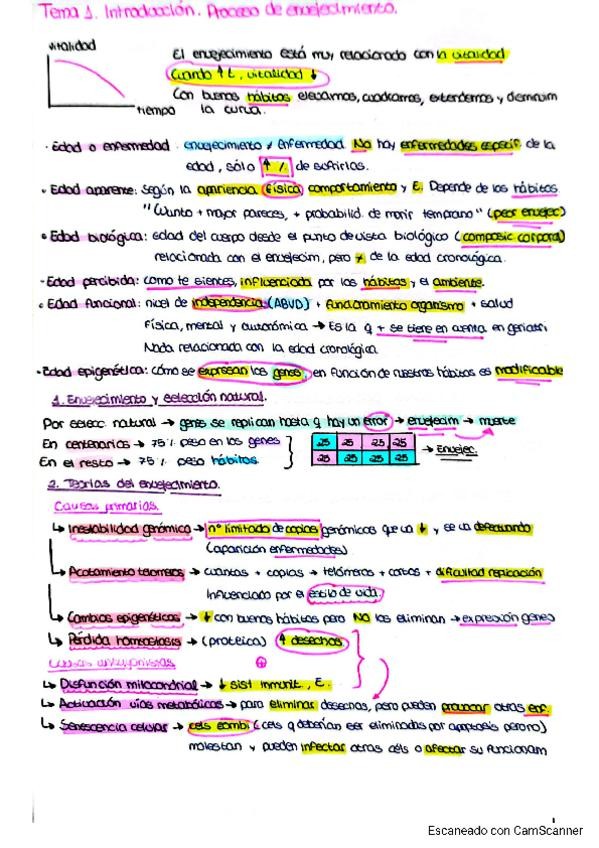 Tema 1. Introducción. Proceso de envejecimiento.
vitalidad
El envejecimiento está muy relacionado con la vitalidad
Cuando ↑ t, vitalidad ↓
Con buenos hábitos elevamos, cuadramos, extendemos y disminuim
tiempo la curva.
· Edad o enfermedad: envejecimiento ≠ enfermedad. No hay enfermedades específ. de la
edad, sólo ↑ % de sufrirlas.
• Edad aparente: según la apariencia física, comportamiento y E. Depende de los hábitos
"Cuanto + mayor pareces, + probabilid. de morir temprano" (peor envejec)
• Edad biológica: edad del cuerpo desde el punto de vista biológico (composic corporal)
relacionada con el envejecim, pero ≠ de la edad cronológica.
· Edad percibida: como te sientes, influenciada por los hábitos y el ambiente.
• Edad funcional: nivel de independencia (ABVD) + funcionamiento organismo + salud
Física, mental y autonómica → Es la q + se tiene en cuenta en geriatrí
Nada relacionada con la edad cronológica
· Edad epigenética: cómo se expresan los genes, en función de nuestros hábitos es modificable
1. Envejecimiento y selección natural.
Por selecc. natural → genes se replican hasta q hay un error → envejecim → muerte
En centenarios → 75% peso en los genes
25 25 25 25
→ Envejec.
En el resto → 75% peso hábitos
25 25 25 25
2. Teorías del envejecimiento.
Causas primarias.
↳ Inestabilidad genómica → nº limitado de copias genómicas que va ↓ y se va defectuando
(aparición enfermedades)
↳ Acotamiento telómeros → cuantas + copias → telómeros + cortos + dificultad replicación
Influenciado por el estilo de vida
↳ Cambios epigenéticos → ↓ con buenos hábitos pero NO los eliminan → expresión genes
↳ Pérdida homeostasis → (proteica) ↑ desechos
Causas antagonistas. ⊕
↳ Disfunción mitocondrial → ↓ sist inmunit., E.
↳ Activación vías metabólicas → para eliminar desechos, pero pueden provocar otras enf.
↳ Senescencia celular → cels zombi (cels q deberían ser eliminadas por apoptosis pero no)
molestan y pueden infectar otras céls o afectar su funcionam
1
Escaneado con CamScanner